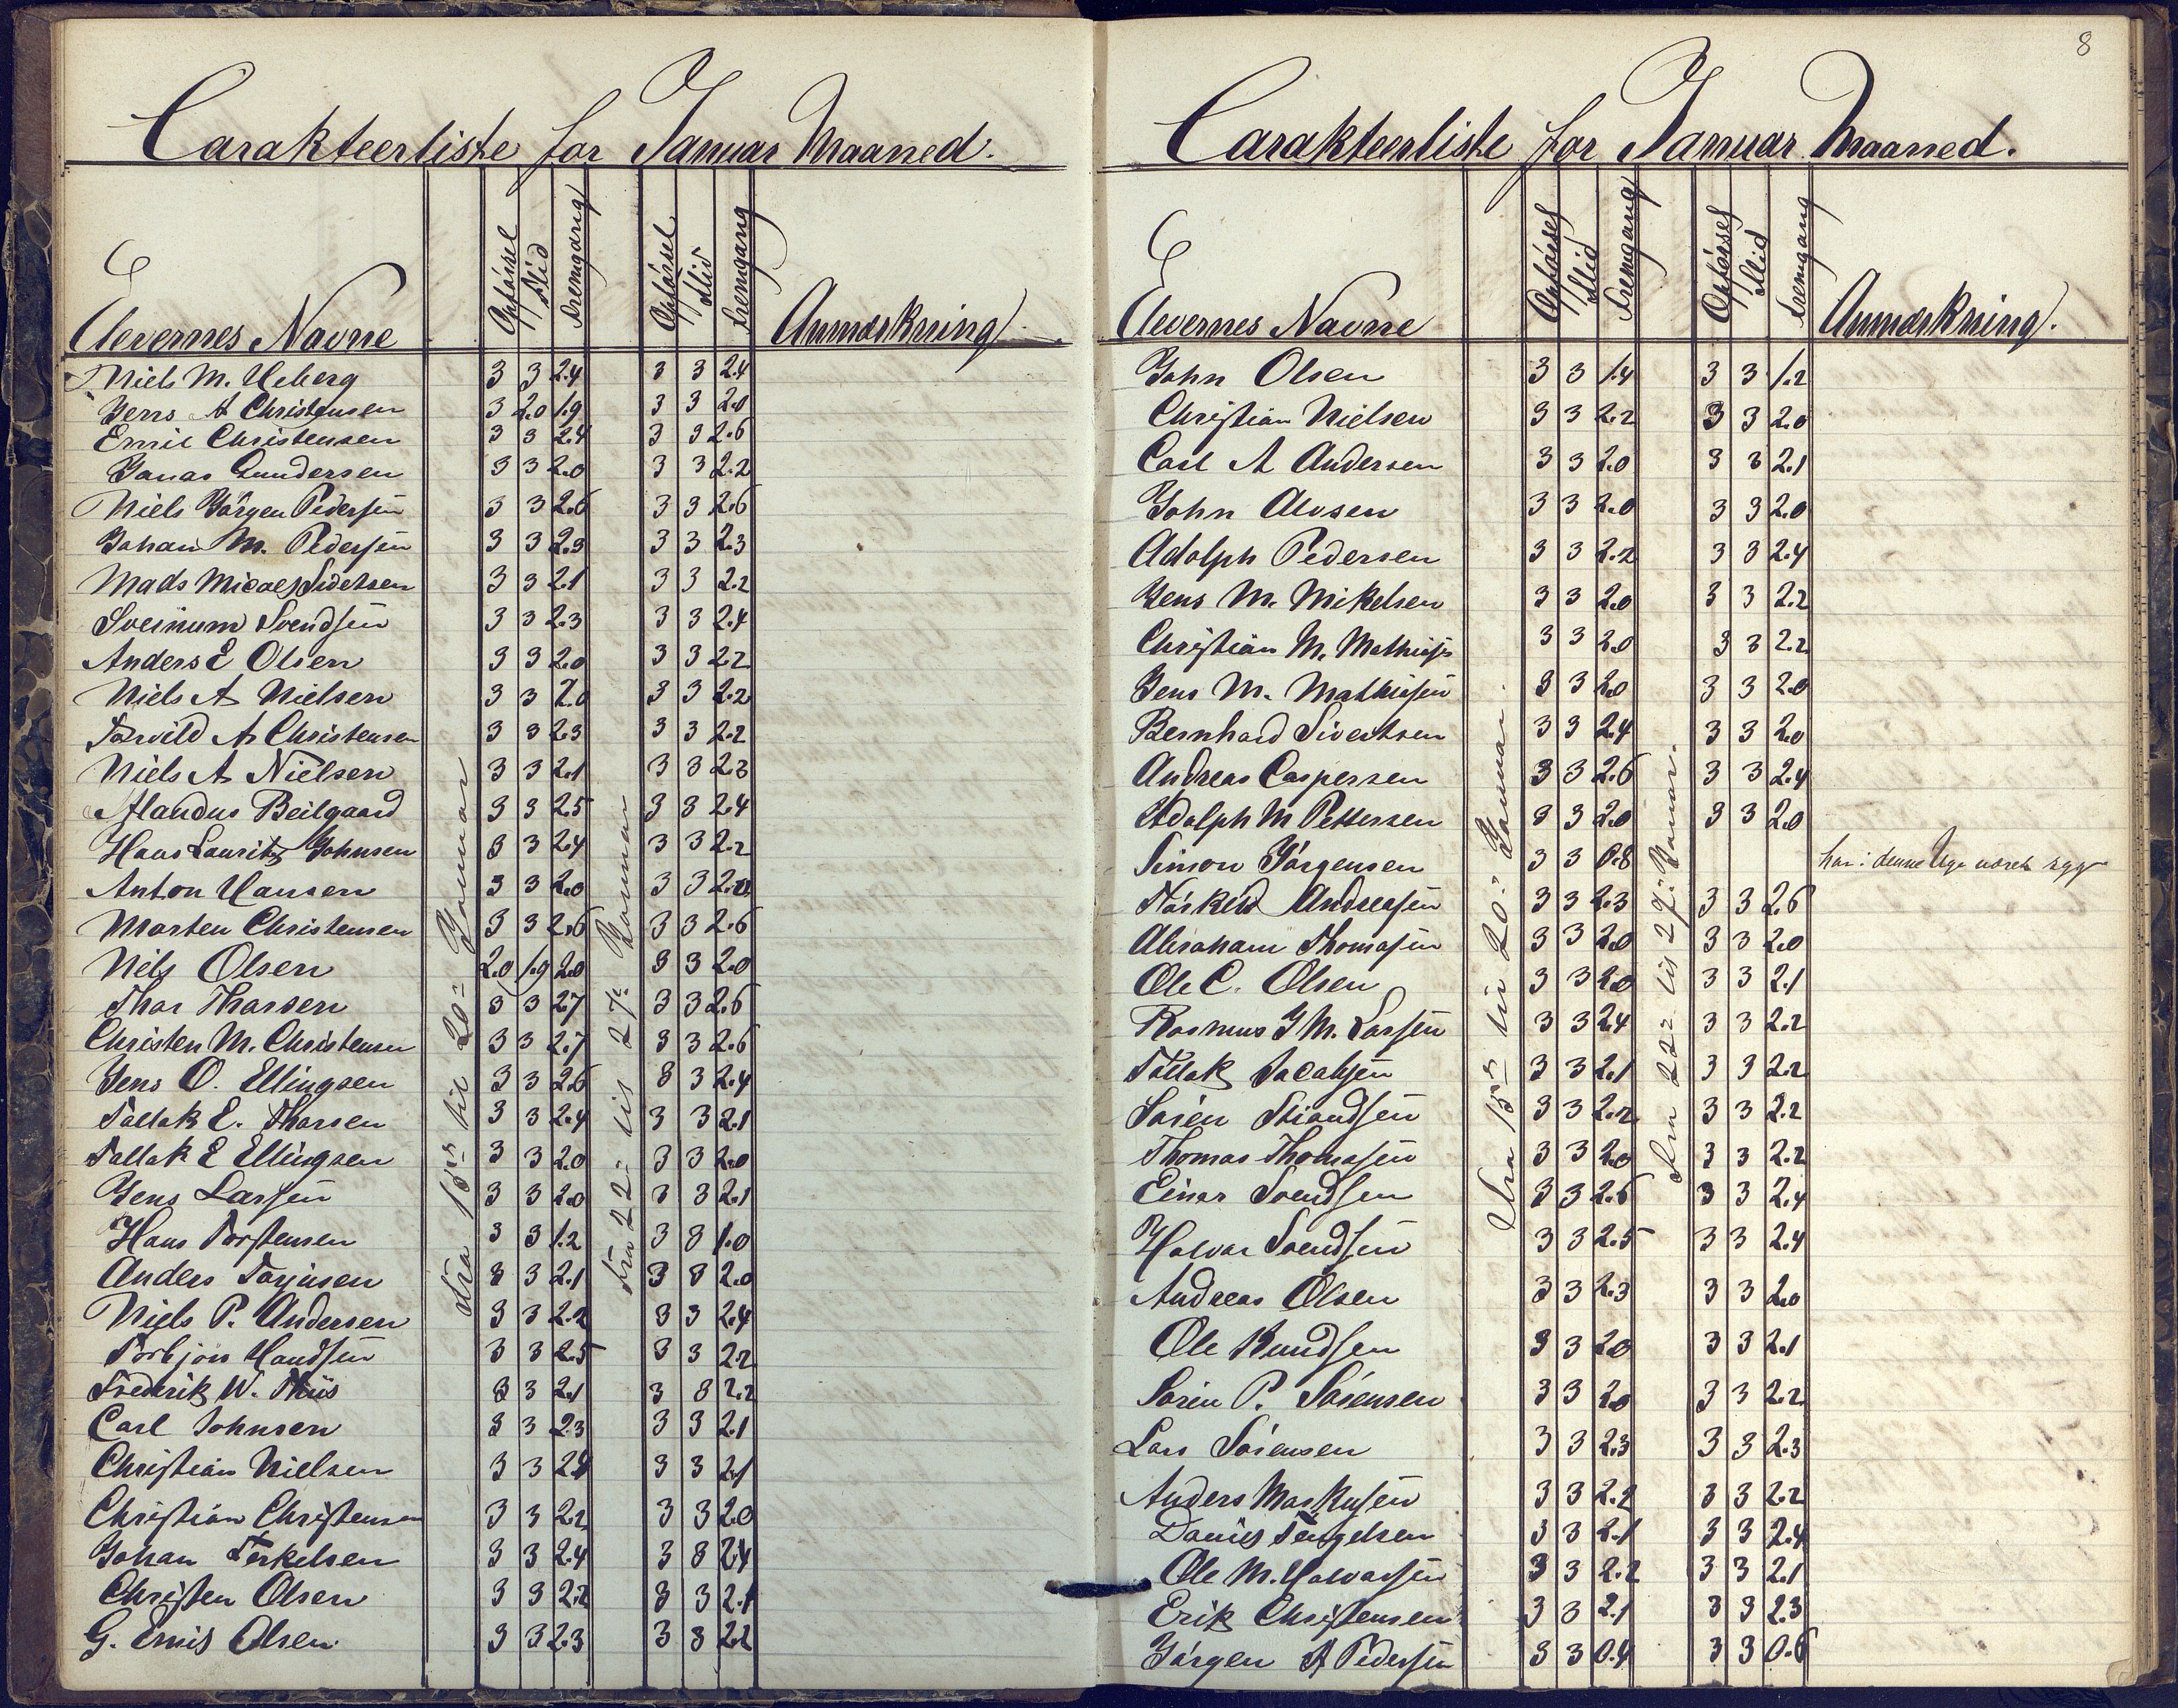 Carakteerliste for Januar Maaned.
Elevernes Navne Opførsel Flid Fremgang Opførsel Flid Fremgang Anmærkning
Fra 15de til 20de Januar
Fra 22de til 27de Januar
Niels M. Ueberg 3 3 2.4 3 3 2.4
Jens A Christensen 3 2.0 1.9 3 3 2.0
Emil Christensen 3 3 2.4 3 3 2.6
Jonas Gundersen 3 3 2.0 3 3 2.2
Niels Jörgen Pedersen 3 3 2.6 3 3 2.6
Johan M. Pedersen 3 3 2.3 3 3 2.3
Mads Micael Sivertsen 3 3 2.1 3 3 2.2
Sveinum Svendsen 3 3 2.3 3 3 2.4
Anders E Olsen 3 3 2.0 3 3 2.2
Niels A Nielsen 3 3 2.0 3 3 2.2
Torvild A Christensen 3 3 2.3 3 3 2.2
Niels A Nielsen 3 3 2.1 3 3 2.3
Alandus Beilgaard 3 3 2.5 3 3 2.4
Hans Lauritz Johnsen 3 3 2.4 3 3 2.2
Anton Hansen 3 3 2.0 3 3
Morten Christensen 3 3 2.6 3 3 2.6
Nils Olsen 2.0 1.9 2.0 3 3 2.0
Thor Thorsen 3 3 2.7 3 3 2.6
Christen M. Christensen 3 3 2.7 3 3 2.6
Jens O. Ellingsen 3 3 2.6 3 3 2.4
Tallak E. Thorsen 3 3 2.4 3 3 2.1
Tallak E Ellingsen 3 3 2.0 3 3 2.0
Jens Larsen 3 3 2.0 3 3 2.1
Hans Torstensen 3 3 1.2 3 3 1.0
Anders Torjusen 3 3 2.1 3 3 2.0
Niels P. Andersen 3 3 2.2 3 3 2.4
Torbjön Knudsen 3 3 2.5 3 3 2.2
Frederik W. Thiis 3 3 2.1 3 3 2.2
Carl Johnsen 3 3 2.3 3 3 2.1
Christian Nielsen 3 3 3 3 2.1
Christian Christensen 3 3 2.2 3 3 2.0
Johan Terkelsen 3 3 2.4 3 3 2.4
Christen Olsen 3 3 2.2 3 3 2.1
G. Emil Olsen 3 3 2.3 3 3 2.2
8
Carakteerliste for Januar Maaned.
Elevernes Navne Opførsel Flid Fremgang Opførsel Flid Fremgang Anmærkning.
Fra 15de til 20de Januar.
Fra 22de til 27de Januar.
John Olsen 3 3 1.4 3 3 1.2
Christian Nielsen 3 3 2.2 3 3 2.0
Carl A Andersen 3 3 2.0 3 3 2.1
John Alvsen 3 3 2.0 3 3 2.0
Adolph Pedersen 3 3 2.2 3 3 2.4
Jens M. Mikelsen 3 3 2.0 3 3 2.2
Christian M. Mathiess 3 3 2.0 3 3 2.2
Jens M. Mathiesen 3 3 2.0 3 3 2.0
Bernhard Sivertsen 3 3 2.4 3 3 2.0
Andreas Caspersen 3 3 2.6 3 3 2.4
Adolph M Pettersen 3 3 2.0 3 3 2.0
Simon Jörgensen 3 3 0.8 har i denne Uge været syg
Andreasen 3 3 2.3 3 3 2.6
Abraham Thomasen 3 3 2.0 3 3 2.0
Ole C. Olsen 3 3 2.0 3 3 2.1
Rasmus J M. Larsen 3 3 2.4 3 3 2.2
Tallak Jacobsen 3 3 2.1 3 3 2.2
Sören Striandsen 3 3 2.2 3 3 2.2
Thomas Thomasen 3 3 2.0 3 3 2.2
Einar Svendsen 3 3 2.6 3 3 2.4
Halvar Svendsen 3 3 2.5 3 3 2.4
Andreas Olsen 3 3 2.3 3 3 2.0
Ole Knudsen 3 3 2.0 3 3 2.1
Sören P. Sörensen 3 3 2.0 3 3 2.2
Lars Sörensen 3 3 2.3 3 3 2.3
Anders Markusen 3 3 2.2 3 3 2.2
Daniel Tengelsen 3 3 2.1 3 3 2.4
Ole M. Halvorsen 3 3 2.2 3 3 2.1
Erik Christensen 3 3 2.1 3 3 2.3
Jörgen A Pedersen 3 3 0.4 3 3 0.6